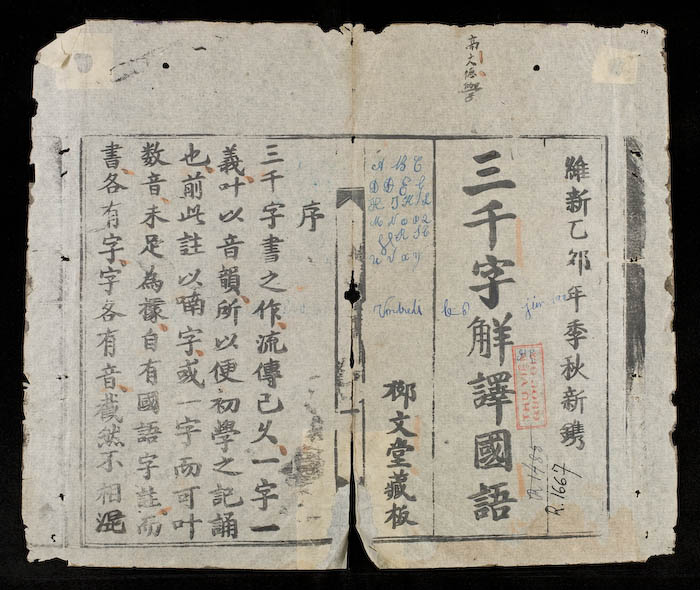 維新乙夘年季秋新鐫
三千字觧譯國語
栁文堂藏板
R.1667
A B C
D Đ E G
u v x y
序
三千字書之作流傳已久一字一
義叶以音韻所以便初學之記誦
也前此註以喃字或一字而可叶
数音未足為㨿自有國語字註而
書各有字字各有音截然不相混